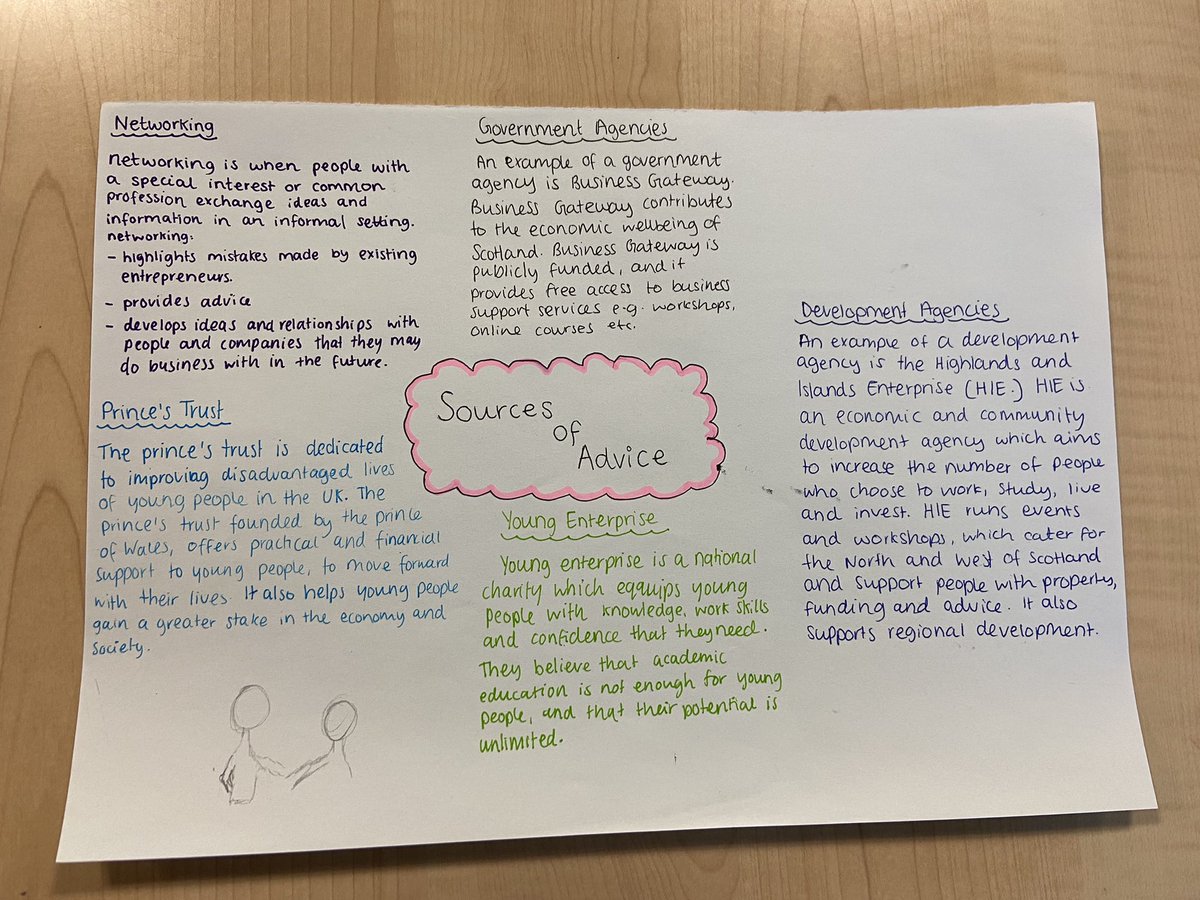 Networking
networking is when people with
a special interest or common
profession exchange ideas and
information in an informal setting.
networking:
- highlights mistakes made by existing
entrepreneurs.
- provides advice
- develops ideas and relationships with
people and companies that they may
do business with in the future.
Government Agencies
An example of a government
agency is Business Gateway.
Business Gateway contributes
to the economic wellbeing of
Scotland. Business Gateway is
publicly funded, and it
provides free access to business
support services e.g. workshops,
online courses etc.
Development Agencies
An example of a development
agency is the Highlands and
Islands Enterprise (HIE.) HIE is
an economic and community
development agency which aims
to increase the number of people
who choose to work, study, live
and invest. HIE runs events
and workshops, which cater for
the North and West of Scotland
and support people with property,
funding and advice. It also
supports regional development.
Sources
of
Advice
Prince's Trust
The prince's trust is dedicated
to improving disadvantaged lives
of young people in the UK. The
prince's trust founded by the prince
of Wales, offers practical and financial
support to young people, to move forward
with their lives. It also helps young people
gain a greater stake in the economy and
society.
Young Enterprise
Young enterprise is a national
charity which equips young
people with knowledge, work skills
and confidence that they need.
They believe that academic
education is not enough for young
people, and that their potential is
unlimited.